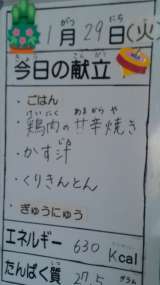 1月29日(火)
がつ にち か
今日の献立
きょう こんだて
・ごはん
けいにく あまから や
・鶏肉の甘辛焼き
じる
・かす汁
・くりきんとん
・ぎゅうにゅう
エネルギー 630 Kcal
たんぱく質 27.5